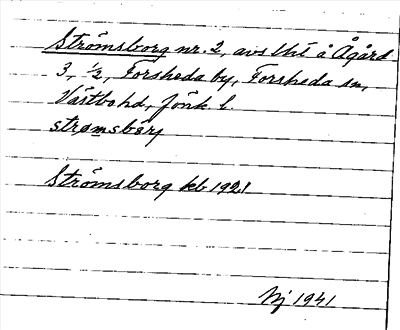 Strömsborg nr. 2, avs lht å Ågård
3, ½, Forsheda by, Forsheda sn,
Västbo hd, Jönk l.
strømsbårj
Strömsborg kb 1921
Nj 1941